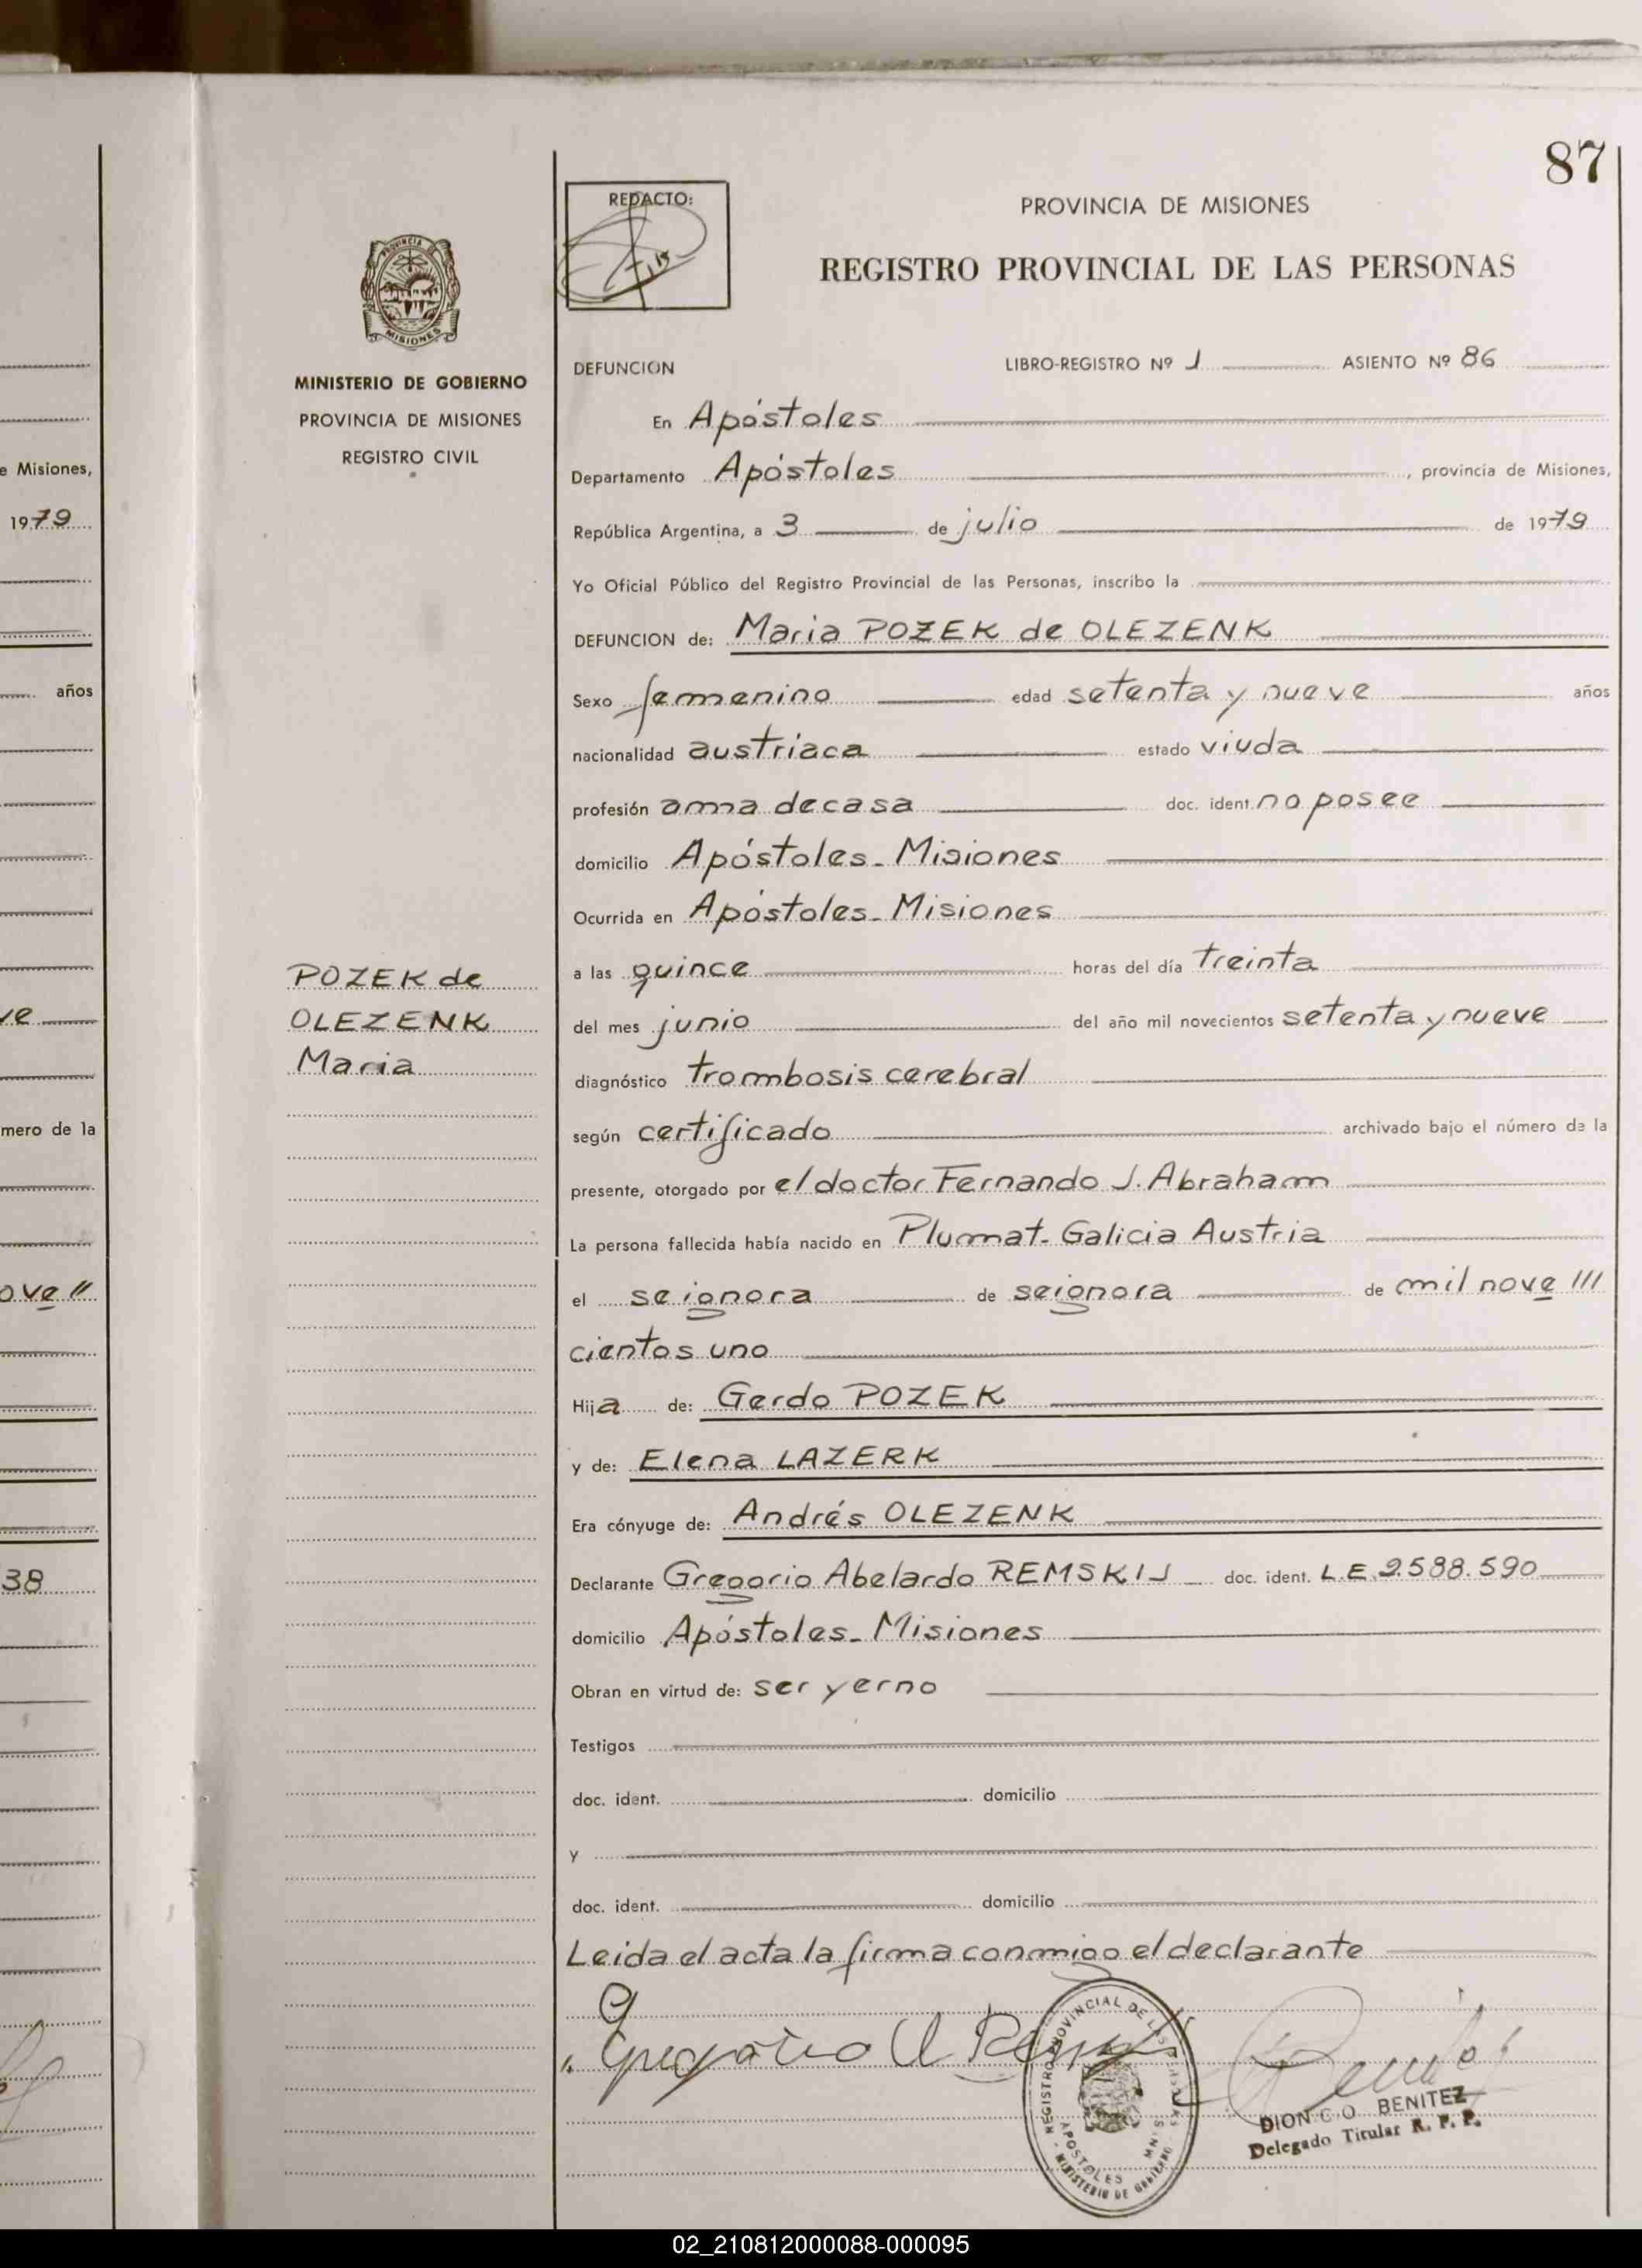 87
REDACTO:
PROVINCIA DE MISIONES
REGISTRO PROVINCIAL DE LAS PERSONAS
PROVINCIA DE
MISIONES
MINISTERIO DE GOBIERNO
PROVINCIA DE MISIONES
REGISTRO CIVIL
DEFUNCION LIBRO-REGISTRO Nº 1 ASIENTO Nº 86
En Apóstoles
Departamento Apóstoles, provincia de Misiones,
e Misiones,
República Argentina, a 3 de julio de 1979
1979
Yo Oficial Público del Registro Provincial de las Personas, inscribo la
DEFUNCION de: Maria POZEK de OLEZENK
Sexo femenino edad setenta y nueve años
años
nacionalidad austriaca estado viuda
profesión ama de casa doc. ident. no posee
domicilio Apóstoles - Misiones
Ocurrida en Apóstoles - Misiones
POZEK de
OLEZENK
Maria
a las quince horas del día treinta
del mes junio del año mil novecientos setenta y nueve
ve
diagnóstico trombosis cerebral
según certificado archivado bajo el número de la
mero de la
presente, otorgado por el doctor Fernando J. Abraham
La persona fallecida había nacido en Plumat - Galicia Austria
el se ignora de se ignora de mil nove ///
ove //
cientos uno
Hija de: Gerdo POZEK
y de: Elena LAZERK
Era cónyuge de: Andrés OLEZENK
Declarante Gregorio Abelardo REMSKIJ doc. ident. L.E. 2.588.590
38
domicilio Apóstoles - Misiones
Obran en virtud de: ser yerno
Testigos
doc. ident. domicilio
y
doc. ident. domicilio
Leida el acta la firma conmigo el declarante
Gregorio A
REGISTRO PROVINCIAL DE LAS PERSONAS
APOSTOLES MNES
MINISTERIO DE GOBIERNO
DIONICIO BENITEZ
Delegado Titular R. P. P.
02_210812000088-000095